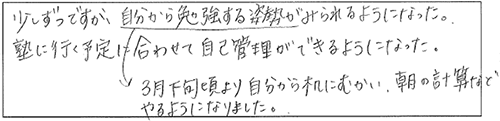 少しずつですが、自分から勉強する姿勢がみられるようになった。
塾に行く予定に合わせて自己管理ができるようになった。
3月下旬頃より自分から机にむかい、朝の計算など
やるようになりました。